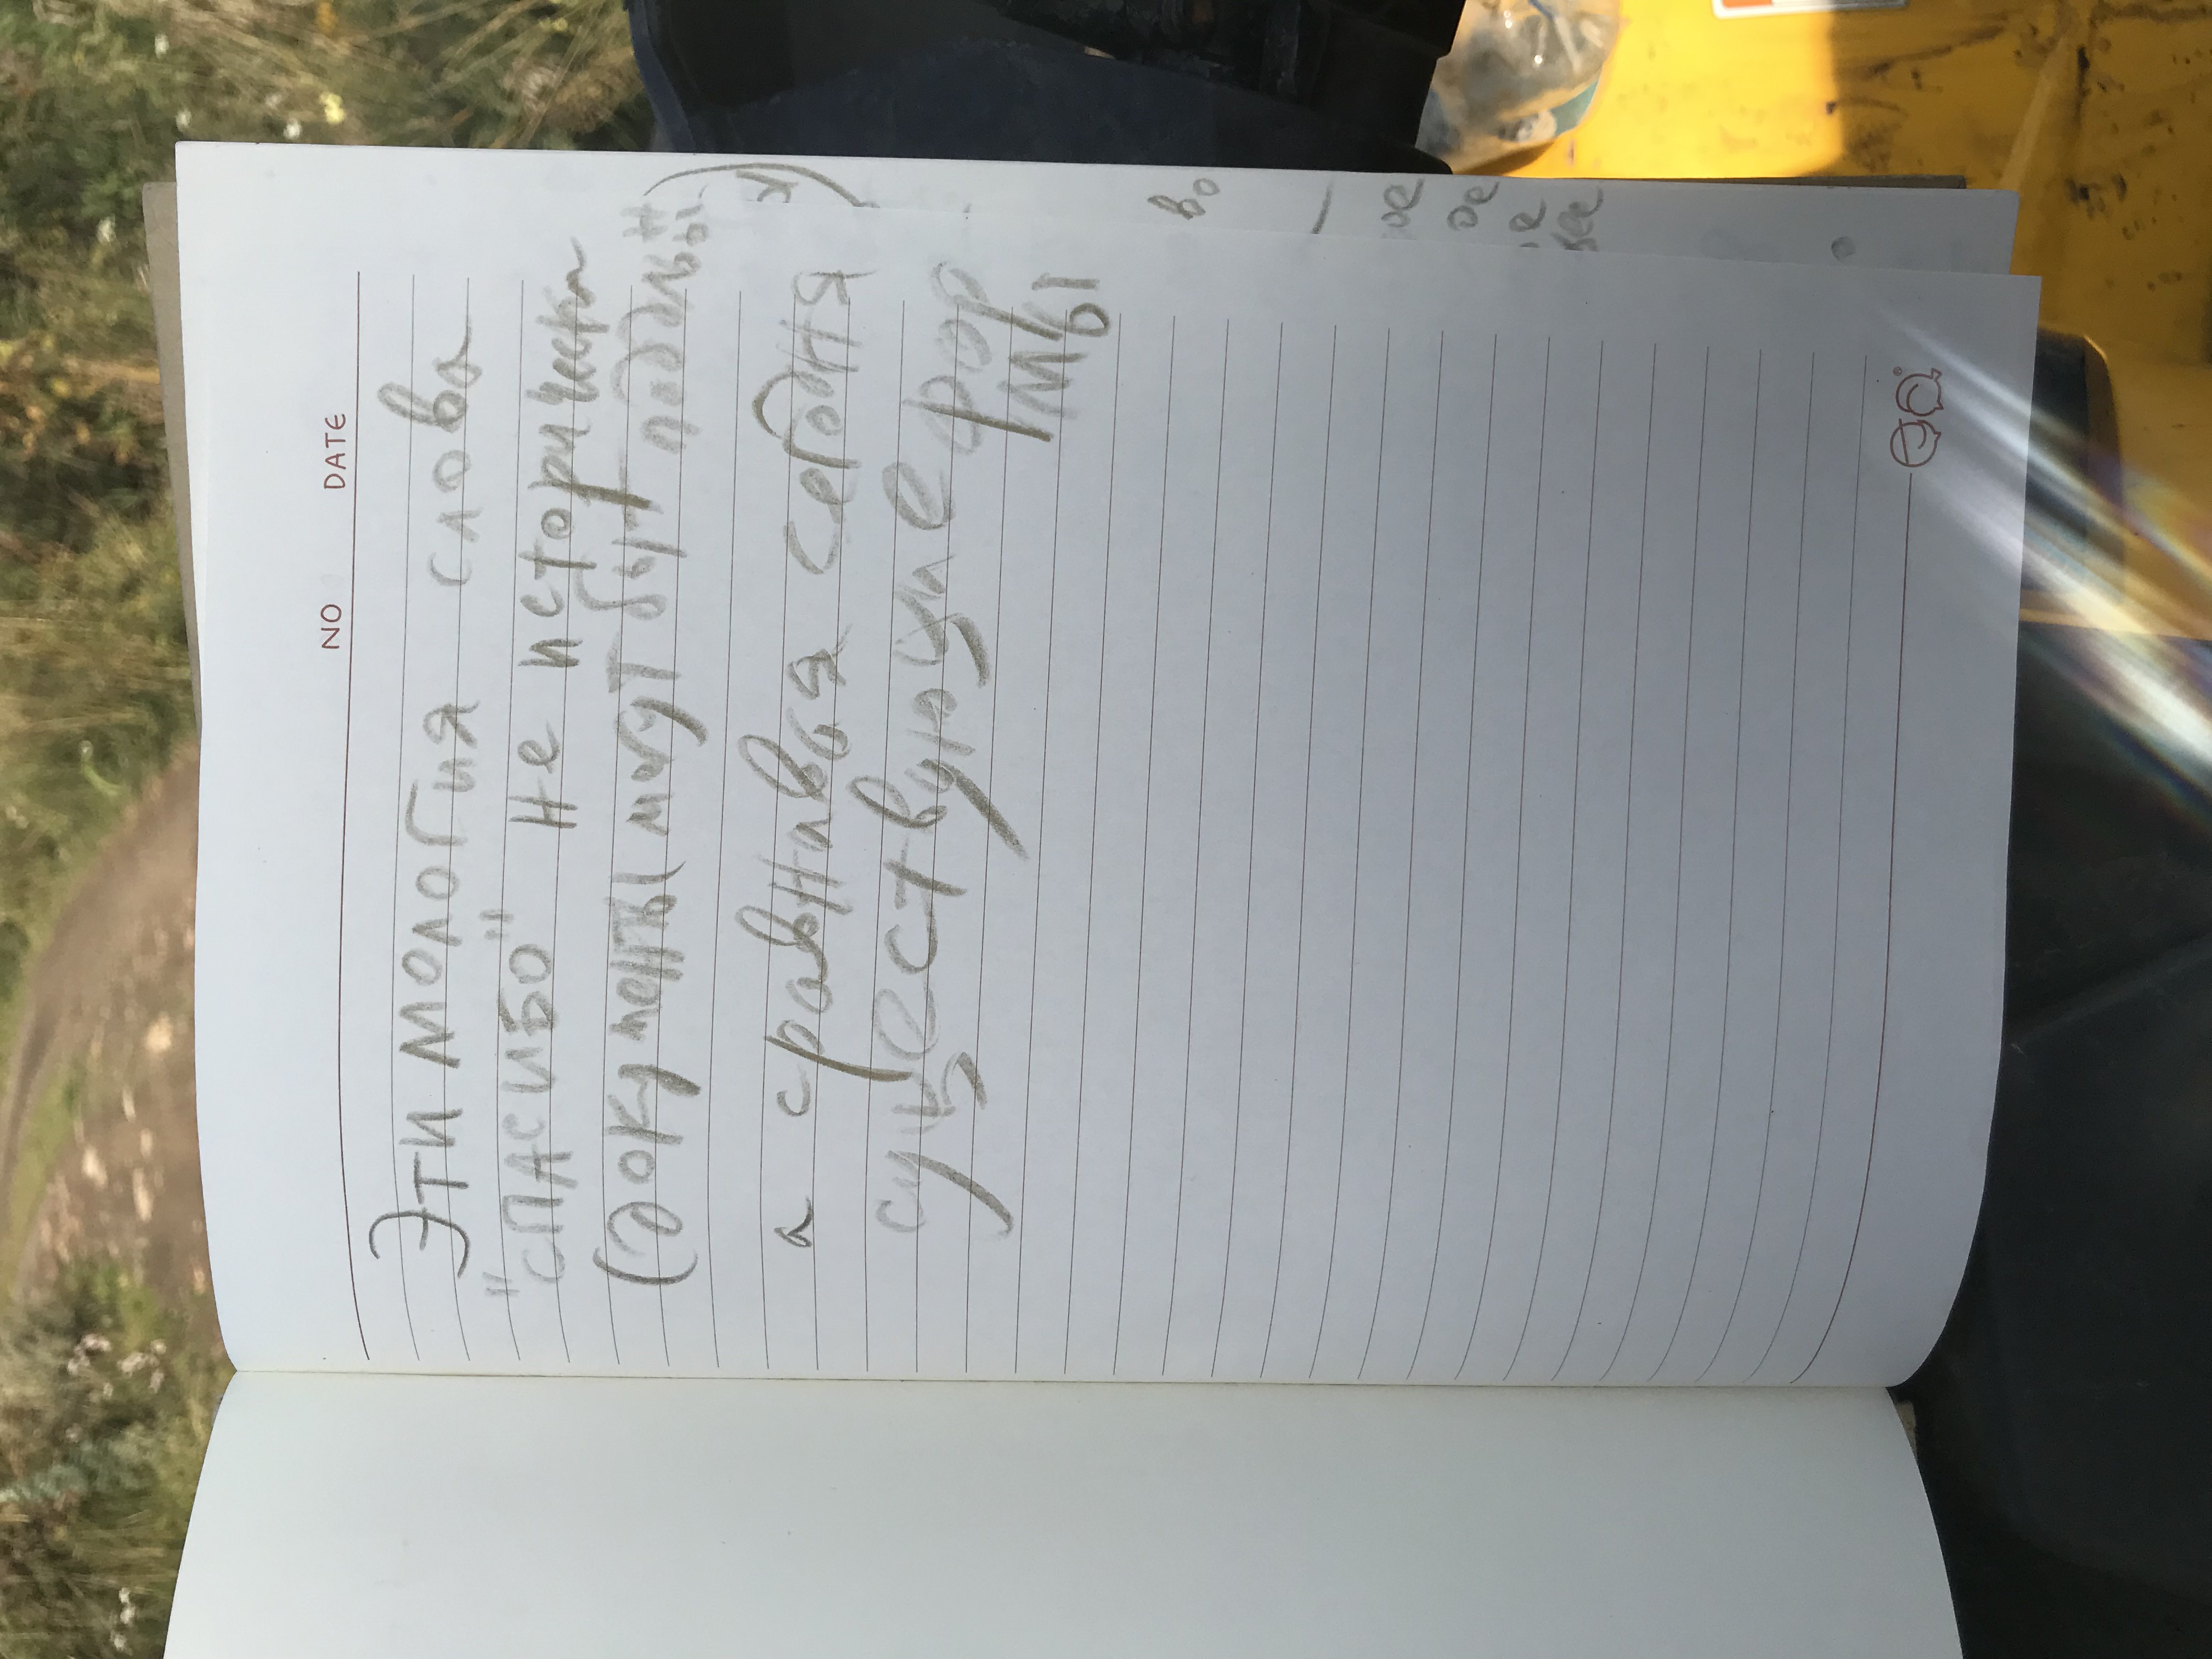 NO DATE
Этимология слова
"СПАСИБО" не исторически
(документы могут быть поддельны)
а сравнивая сегодня
существующие фор
мы
во
ое
ое